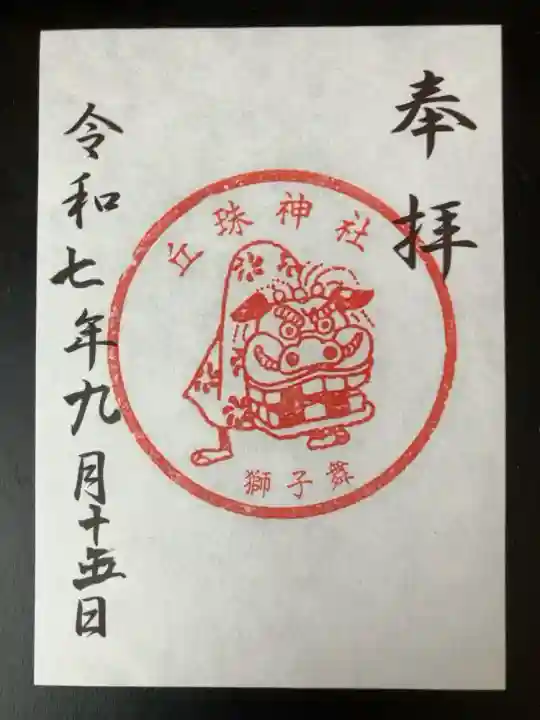 奉拝
丘珠神社
獅子舞
令和七年九月十五日